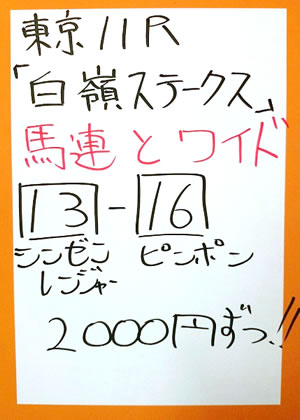 東京11R
「白嶺ステークス」
馬連とワイド
13-16
シンゼン ピンポン
レンジャー
2000円ずつ!!